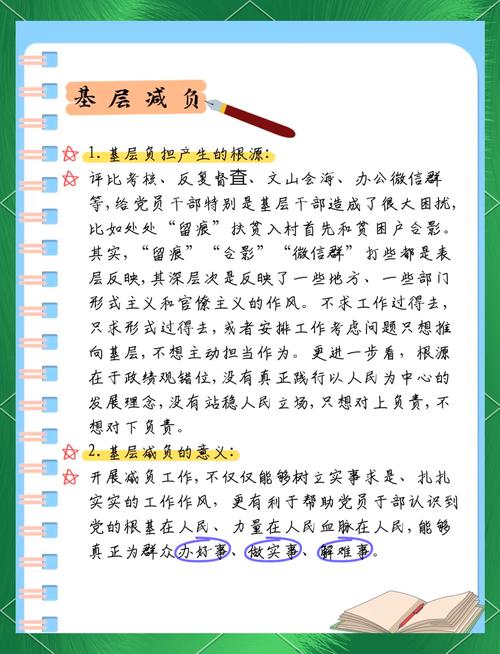 基层减负
1. 基层负担产生的根源:
评比考核、反复督查、文山会海、办公微信群
等, 给党员干部特别是基层干部造成了很大困扰,
比如处处“留痕”扶贫入村首先和贫困户合影。
其实, “留痕” “合影” “微信群” 打些都是表
层反映, 其深层次是反映了一些地方、一些部门
形式主义和官僚主义的作风。 不求工作过得去,
只求形式过得去, 或者安排工作考虑问题只想推
向基层, 不想主动担当作为。 更进一步看, 根源
在于政绩观错位, 没有真正践行以人民为中心的
发展理念, 没有站稳人民立场, 只想对上负责, 不
想对下负责。
2. 基层减负的意义:
开展减负工作, 不仅仅能够树立实事求是、扎扎
实实的工作作风, 更有利于帮助党员干部认识到
党的根基在人民、力量在人民血脉在人民, 能够
真正为群众办好事、做实事、解难事。